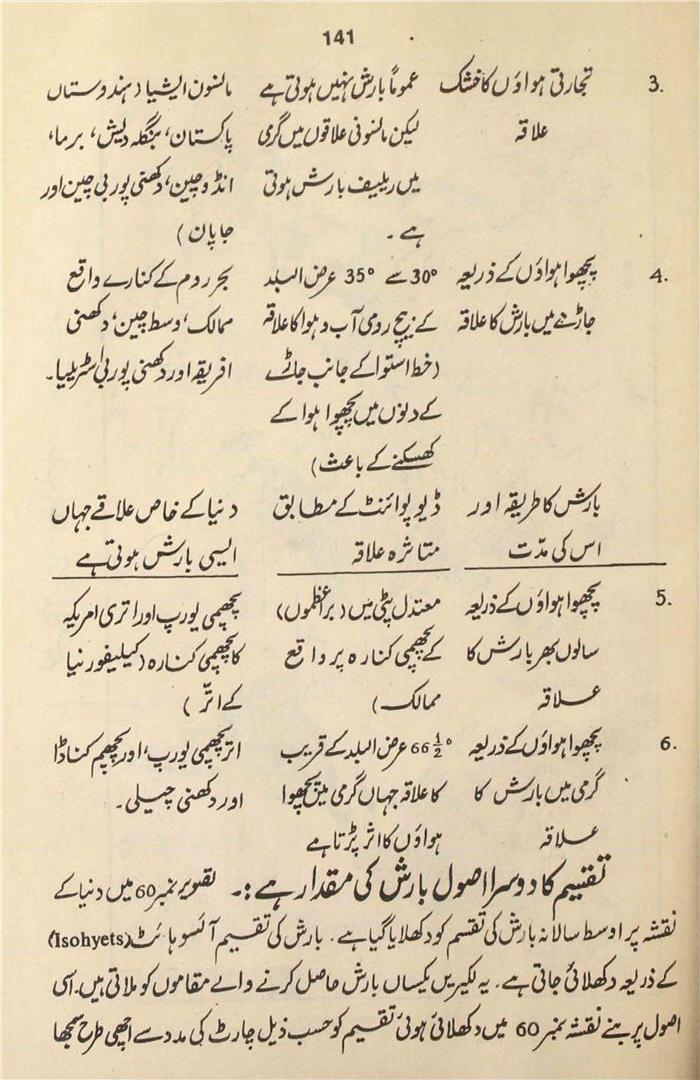 141
3. تجارتی ہواؤں کا خشک عموماً بارش نہیں ہوتی ہے مانسون ایشیا (ہندوستان
علاقہ لیکن مانسونی علاقوں میں گرمی پاکستان، بنگلہ دیش، برما،
میں ریلیف بارش ہوتی انڈوچین، دکھنی پوربی چین اور
ہے۔ جاپان)
4. پچھوا ہواؤں کے ذریعہ 30° سے 35° عرض البلد بحر روم کے کنارے واقع
جاڑے میں بارش کا علاقہ کے بیچ رومی آب و ہوا کا علاقہ ممالک، وسط چین، دکھنی
(خط استوا کے جانب جاڑے افریقہ اور دکھنی پوربی اسٹریلیا۔
کے دنوں میں پچھوا ہوا کے
کھسکنے کے باعث)
بارش کا طریقہ اور ڈیو پوائنٹ کے مطابق دنیا کے خاص علاقے جہاں
اس کی مدّت متاثرہ علاقہ ایسی بارش ہوتی ہے
5. پچھوا ہواؤں کے ذریعہ معتدل پٹی میں (براعظموں) پچھیمی یورپ اور اتری امریکہ
سالوں بھر بارش کا کے پچھمی کنارہ پر واقع کا پچھمی کنارہ (کیلیفورنیا
علاقہ ممالک) کے اتّر)
6. پچھوا ہواؤں کے ذریعہ 66½° عرض البلد کے قریب اتر پچھیمی یورپ، اور پچھم کناڈا
گرمی میں بارش کا کا علاقہ جہاں گرمی میں پچھوا اور دکھنی چیلی۔
علاقہ ہواؤں کا اثر پڑتا ہے
تقسیم کا دوسرا اصول بارش کی مقدار ہے :۔ تصویر نمبر 60 میں دنیا کے
نقشہ پر اوسط سالانہ بارش کی تقسم کو دکھلایا گیا ہے۔ بارش کی تقسیم آئسوہائٹ (Isohyets)
کے ذریعہ دکھلائی جاتی ہے۔ یہ لکیریں یکساں بارش حاصل کرنے والے مقاموں کو ملاتی ہیں۔ اسی
اصول پر بنے نقشہ نمبر 60 میں دکھلائی ہوئی تقسیم کو حسب ذیل چارٹ کی مدد سے اچھی طرح سمجھا